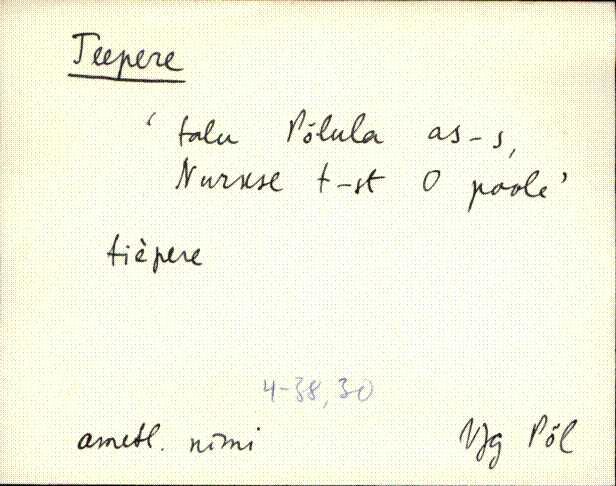 Teepere
‘ talu Põlula as-s,
Nurkse t-st O poole’
tièpere
4-38, 30
ametl. nimi
VJg Põl